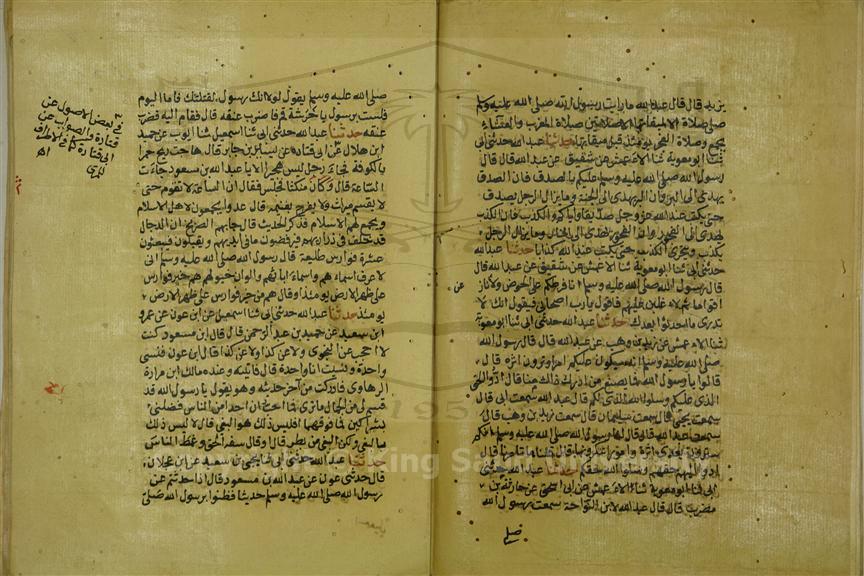 يزيد قال قال عبد الله ما رايت رسول الله صلى الله عليه وسلم
صلى صلاة الا لميقاتها الا صلاتين صلاة المغرب والعشاء
بجمع وصلاة الفجر يومئذ قبل ميقاتها حدثنا عبد الله حدثني ابي
ثنا ابو معوية ثنا الاعمش عن شقيق عن عبد الله قال قال
رسول الله صلى الله عليه وسلم عليكم بالصدق فان الصدق
يهدي الى البر وان البر يهدي الى الجنة وما يزال الرجل يصدق
حتى يكتب عند الله عز وجل صديقا واياكم والكذب فان الكذب
يهدي الى الفجور وان الفجور يهدي الى النار وما يزال الرجل
يكذب ويتحرى الكذب حتى يكتب عند الله كذابا حدثنا عبد الله
حدثني ابي ثنا ابو معوية ثنا الاعمش عن شقيق عن عبد الله قال
قال رسول الله صلى الله عليه وسلم انا فرطكم على الحوض ولانازعن
اقواما ثم لاغلبن عليهم فاقول يا رب اصحابي فيقول انك لا
تدري ما احدثوا بعدك حدثنا عبد الله حدثني ابي ثنا ابو معوية
ثنا الاعمش عن زيد بن وهب عن عبد الله قال قال رسول الله
صلى الله عليه وسلم انه سيكون عليكم امراء وترون اثرة قال
قالوا يا رسول الله فما يصنع من ادرك ذلك منا قال ادوا الحق
الذي عليكم وسلوا الله الذي لكم قال عبد الله سمعت ابي قال
سمعت يحيى قال سمعت سليمان قال سمعت زيد بن وهب قال
سمعت عبد الله قال قال لنا رسول الله صلى الله عليه وسلم انكم
سترون بعدي اثرة وامورا تنكرونها قال قلنا ما تامرنا قال
ادوا اليهم حقهم وسلوا الله حقكم حدثنا عبد الله حدثني
ابي ثنا ابو معوية ثنا الاعمش عن ابي اسحق عن حارثة بن
مضرب قال قال عبد الله لابن النواحة سمعت رسول الله
صلى
صلى الله عليه وسلم يقول لولا انك رسول لقتلتك فاما اليوم
فلست برسول يا خرشة قم فاضرب عنقه قال فقام اليه فضرب
عنقه حدثنا عبد الله حدثني ابي ثنا اسمعيل ثنا ايوب عن حميد
ابن هلال عن ابي قتادة عن يسير بن جابر قال هاجت ريح حمرا
بالكوفة فجاء رجل ليس هجير الا يا عبد الله بن مسعود جاءت
الساعة قال وكان متكئا فجلس فقال ان الساعة لا تقوم حتى
لا يقسم ميراث ولا يفرح بغنيمة قال عدوا يجمعون لاهل الاسلام
ويجمع لهم الاسلام فذكر الحديث قال جاءهم الصريخ ان الدجال
قد خلف في ذراريهم فيرفضون ما في ايديهم ويقبلون فيبعثون
عشرة فوارس طليعة قال رسول الله صلى الله عليه وسلم اني
لاعرف اسماءهم واسماء ابائهم والوان خيولهم هم خير فوارس
على ظهر الارض يومئذ او قال هم من خير فوارس على ظهر الارض
يومئذ حدثنا عبد الله حدثني ابي ثنا اسمعيل عن ابن عون عن عمرو
ابن سعيد عن حميد بن عبد الرحمن قال قال ابن مسعود كنت
لا احجب عن النجوى ولا عن كذا ولا عن كذا قال ابن عون فنسي
واحدة ونسيت انا واحدة قال فاتيته وعنده مالك ابن مرارة
الرهاوي فادركت من آخر حديثه وهو يقول يا رسول الله قد
قسم لي من الجمال ما ترى فما احب ان احدا من الناس فضلني
بشراكين فما فوقهما افليس ذلك هو البغي قال لا ليس ذلك
بالبغي ولكن البغي من بطر قال او قال سفه الحق وغمط الناس
حدثنا عبد الله حدثني ابي ثنا يحيى بن سعيد عن ابن عجلان
قال حدثني عون عن عبد الله بن مسعود قال اذا حدثتم عن
رسول الله صلى الله عليه وسلم حديثا فظنوا برسول الله صلى
في بعض الاصول عن
قتادة والصواب عن
ابي قتادة كما في الاطراف
اه